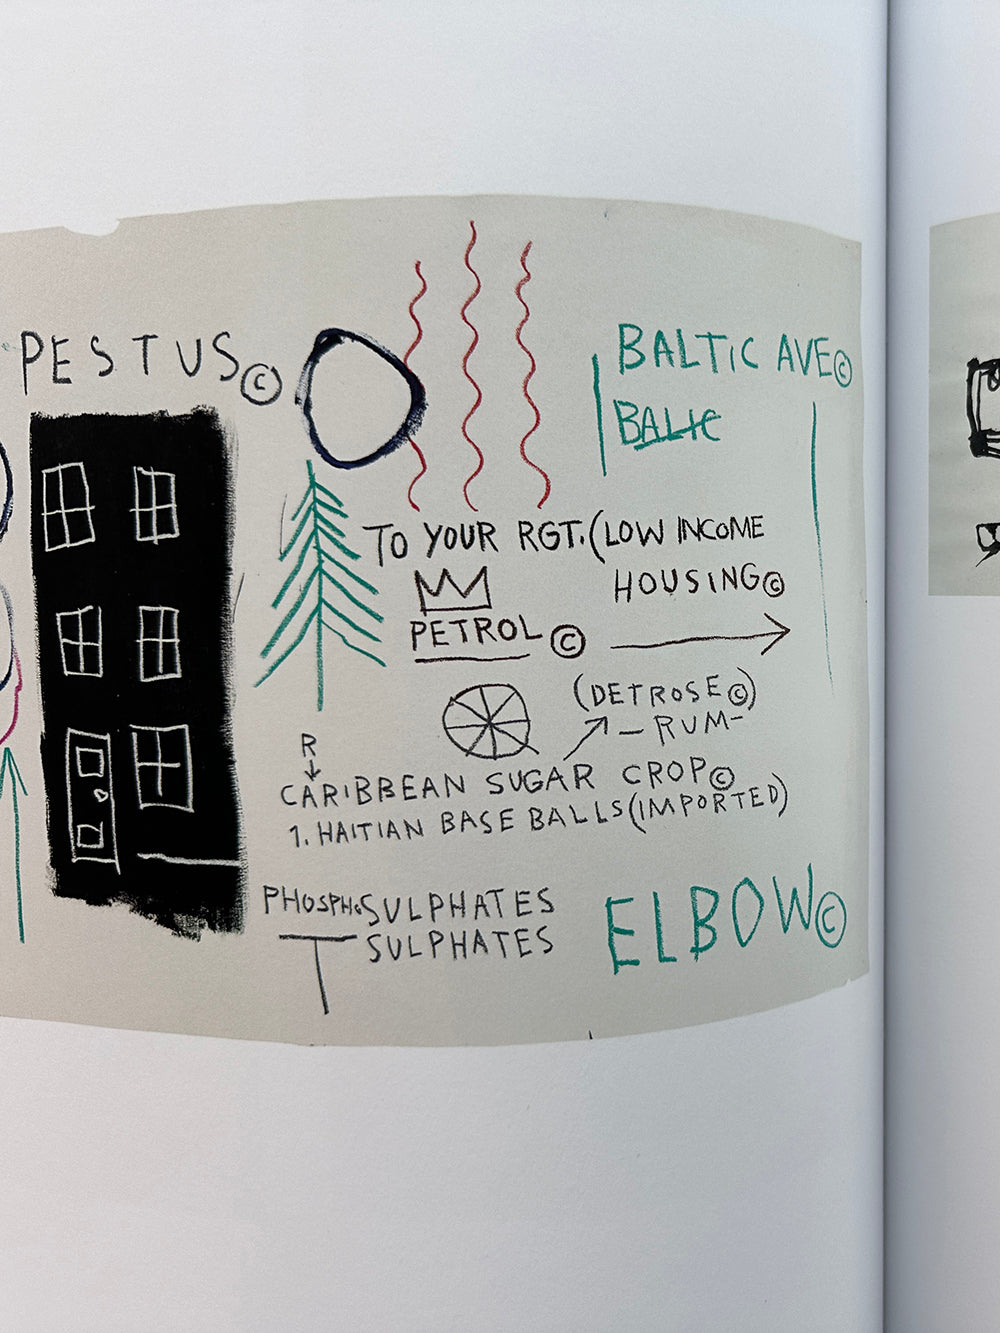 PESTUS©
BALTIC AVE©
BALIC
TO YOUR RGT. (LOW INCOME
HOUSING©
PETROL ©
(DETROSE©)
—RUM—
R
CARIBBEAN SUGAR CROP©
1. HAITIAN BASE BALLS (IMPORTED)
PHOSPHoSULPHATES
SULPHATES
ELBOW©